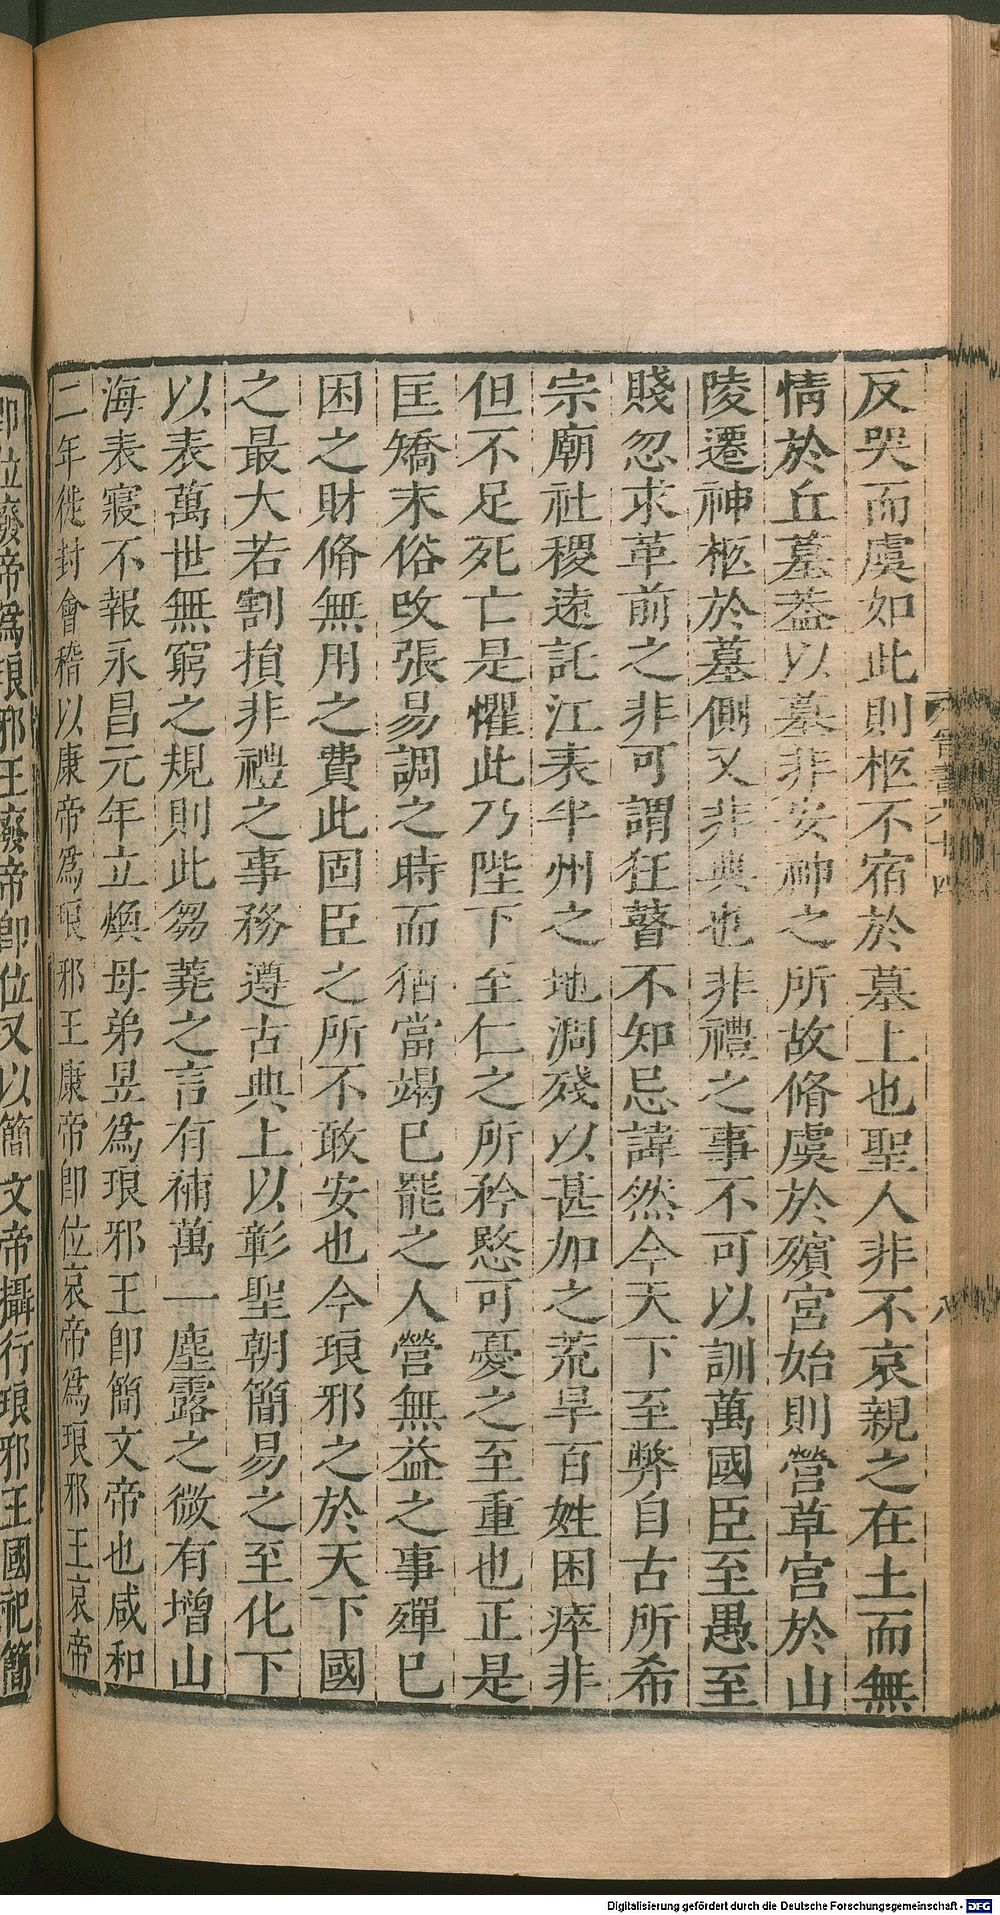 反哭而虞如此則柩不宿於墓上也聖人非不哀親之在土而無
情於丘墓葢以墓非安神之所故脩虞於殯宮始則營草宮於山
陵遷神柩於墓側又非典也非禮之事不可以訓萬國臣至愚至
賤忽求革前之非可謂狂瞽不知忌諱然今天下至弊自古所希
宗廟社稷遠託江表半州之地凋殘以甚加之荒旱百姓困瘁非
但不足死亡是懼此乃陛下至仁之所矜愍可憂之至重也正是
匡矯末俗改張易調之時而猶當竭已罷之人營無益之事殫已
困之財脩無用之費此固臣之所不敢安也今琅邪之於天下國
之最大若割損非禮之事務遵古典上以彰聖朝簡易之至化下
以表萬世無窮之規則此芻蕘之言有補萬一塵露之微有增山
海表寢不報永昌元年立煥母弟昱爲琅邪王卽簡文帝也咸和
二年徙封會稽以康帝爲琅邪王康帝卽位哀帝爲琅邪王哀帝
卽位廢帝爲琅邪王廢帝卽位又以簡文帝攝行琅邪王國祀簡
Digitalisierung gefördert durch die Deutsche Forschungsgemeinschaft - DFG